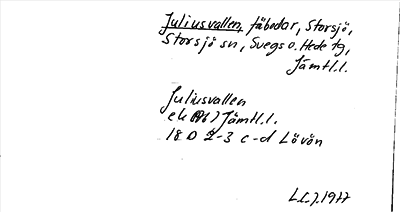 Juliusvallen, fäbodar, Storsjö,
Storsjö sn, Svegs o. Hede tg,
Jämtl.l.
Juliusvallen
ek Jämtl.l.
18 D 2-3 c-d Lövön
1977